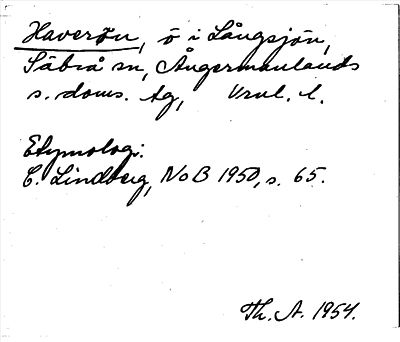 Haverön, ö i Långsjön,
Säbrå sn, Ångermanlands
s. doms. tg, Vrnl. l.
Etymologi:
C. Lindberg, NoB 1950, s. 65.
Th. A. 1954.